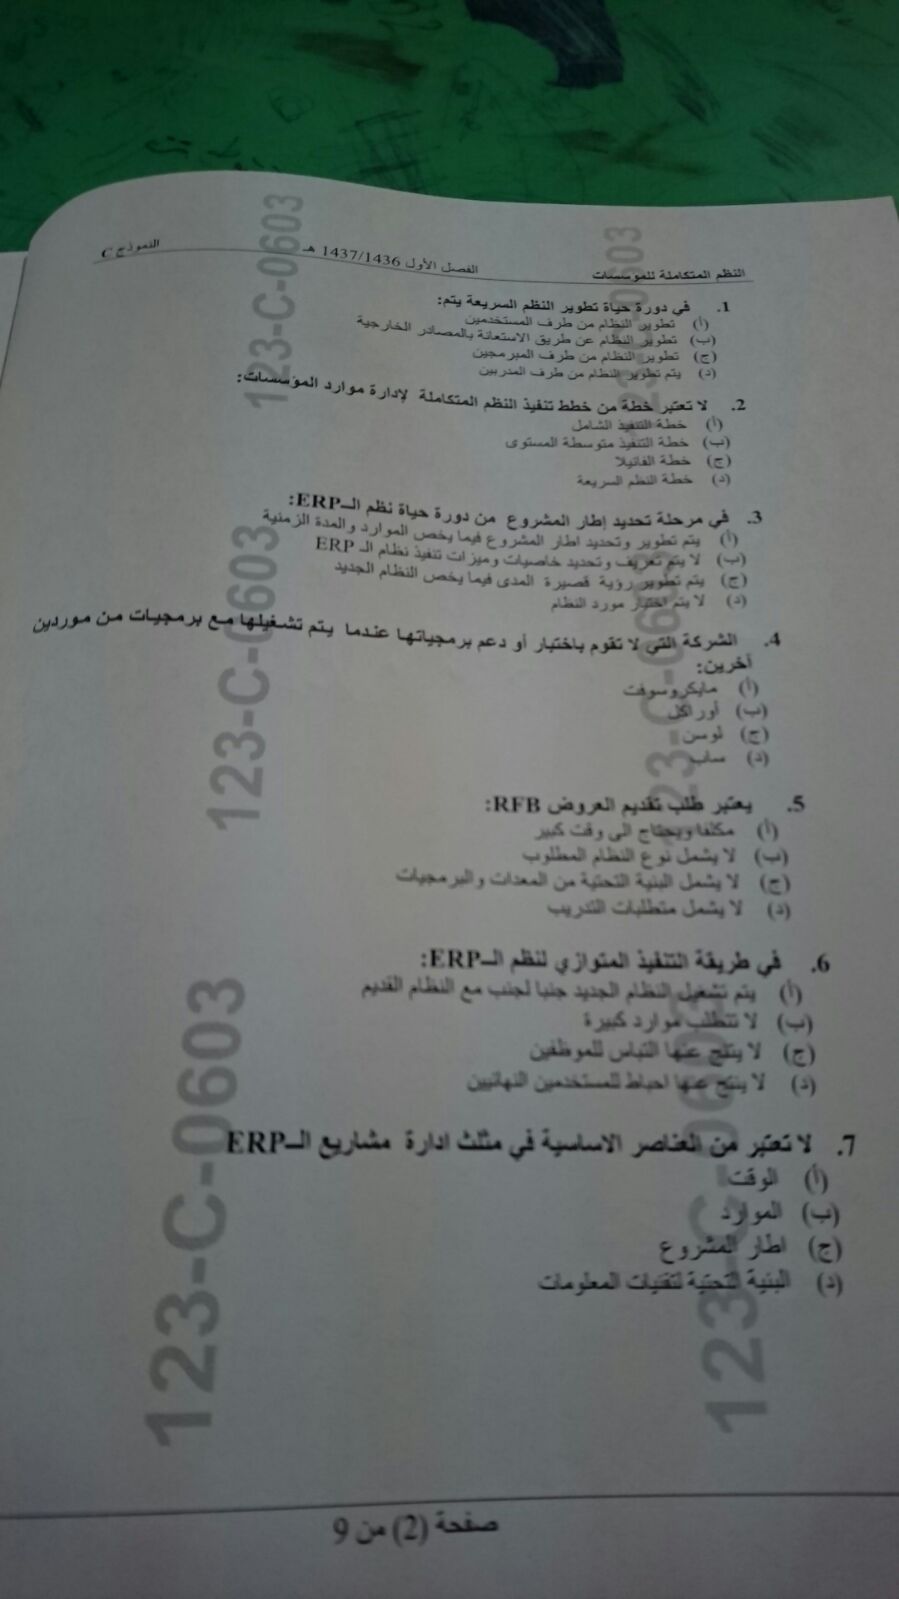 النظم المتكاملة للمؤسسات الفصل الأول 1437/1436 هـ النموذج C
1. في دورة حياة تطوير النظم السريعة يتم:
(أ) تطوير النظام من طرف المستخدمين
(ب) تطوير النظام عن طريق الاستعانة بالمصادر الخارجية
(ج) تطوير النظام من طرف المبرمجين
(د) يتم تطوير النظام من طرف المدربين
2. لا تعتبر خطة من خطط تنفيذ النظم المتكاملة لإدارة موارد المؤسسات:
(أ) خطة التنفيذ الشامل
(ب) خطة التنفيذ متوسطة المستوى
(ج) خطة الفانيلا
(د) خطة النظم السريعة
3. في مرحلة تحديد إطار المشروع من دورة حياة نظم الــERP:
(أ) يتم تطوير وتحديد اطار المشروع فيما يخص الموارد والمدة الزمنية
(ب) لا يتم تعريف وتحديد خاصيات وميزات تنفيذ نظام الـ ERP
(ج) يتم تطوير رؤية قصيرة المدى فيما يخص النظام الجديد
(د) لا يتم اختيار مورد النظام
4. الشركة التي لا تقوم باختبار أو دعم برمجياتها عندما يتم تشغيلها مع برمجيات من موردين
آخرين:
(أ) مايكروسوفت
(ب) أوراكل
(ج) لوسن
(د) ساب
5. يعتبر طلب تقديم العروض RFB:
(أ) مكلفا ويحتاج الى وقت كبير
(ب) لا يشمل نوع النظام المطلوب
(ج) لا يشمل البنية التحتية من المعدات والبرمجيات
(د) لا يشمل متطلبات التدريب
6. في طريقة التنفيذ المتوازي لنظم الــERP:
(أ) يتم تشغيل النظام الجديد جنبا لجنب مع النظام القديم
(ب) لا تتطلب موارد كبيرة
(ج) لا ينتج عنها التباس للموظفين
(د) لا ينتج عنها احباط للمستخدمين النهائيين
7. لا تعتبر من العناصر الاساسية في مثلث ادارة مشاريع الــERP
(أ) الوقت
(ب) الموارد
(ج) اطار المشروع
(د) البنية التحتية لتقنيات المعلومات
صفحة (2) من 9
123-C-0603
123-C-0603
123-C-0603
123-C-0603
123-C-0603
123-C-0603